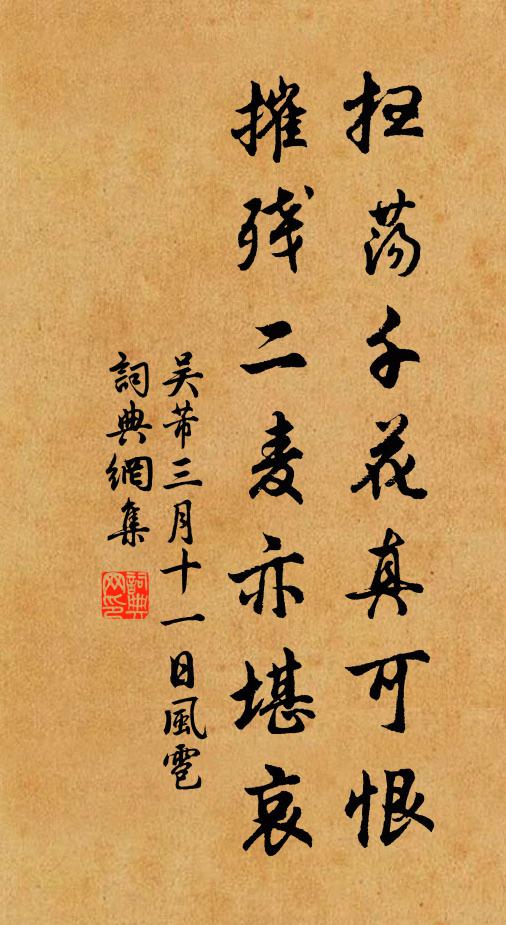 扫荡千花真可恨
摧残二麦亦堪哀
吴芾三月十一日風雹
詞典網集
詞典网印